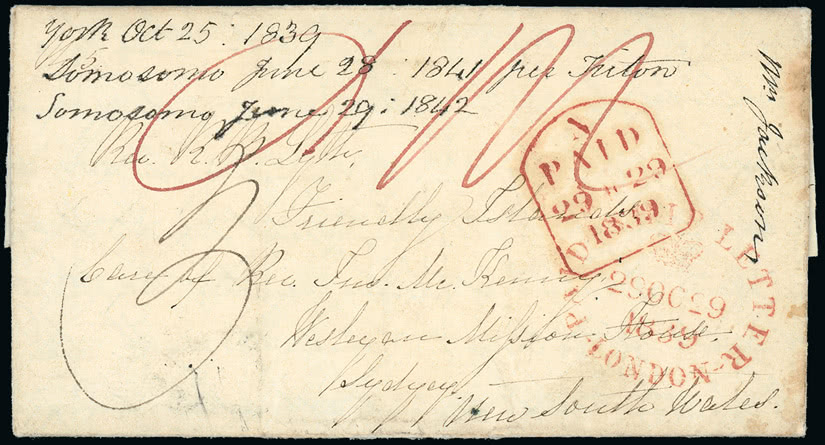 York Oct 25: 1839
Somosomo June 28: 1841 per Triton
Somosomo June 29: 1842
Rev. R. B. Lyth,
Friendly Islands
Care of Rev. Jno. Mc. Kenny,
Wesleyan Mission House,
Sydney,
New South Wales.
Wm Jackson
A
PAID
29 29
1839
PAID SHIP LETTER
29OC29
1839
LONDON